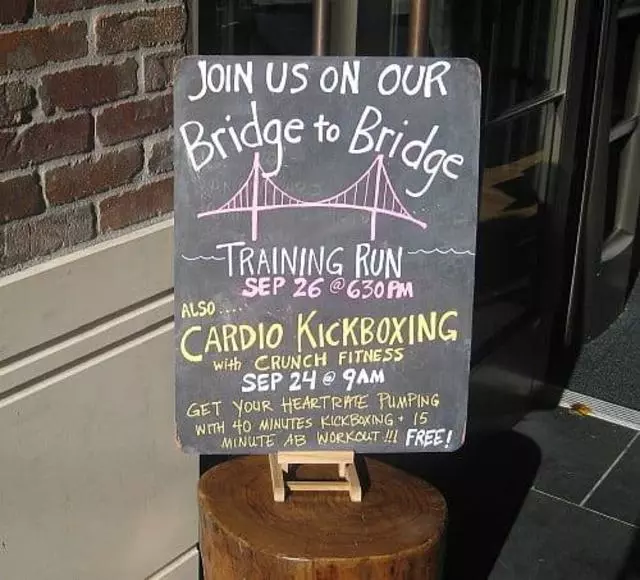 JOIN US ON OUR
Bridge to Bridge
TRAINING RUN
SEP 26 @ 630PM
ALSO ....
CARDIO KICKBOXING
with CRUNCH FITNESS
SEP 24 @ 9AM
GET YOUR HEARTRATE PUMPING
WITH 40 MINUTES KICKBOXING + 15
MINUTE AB WORKOUT !!! FREE!